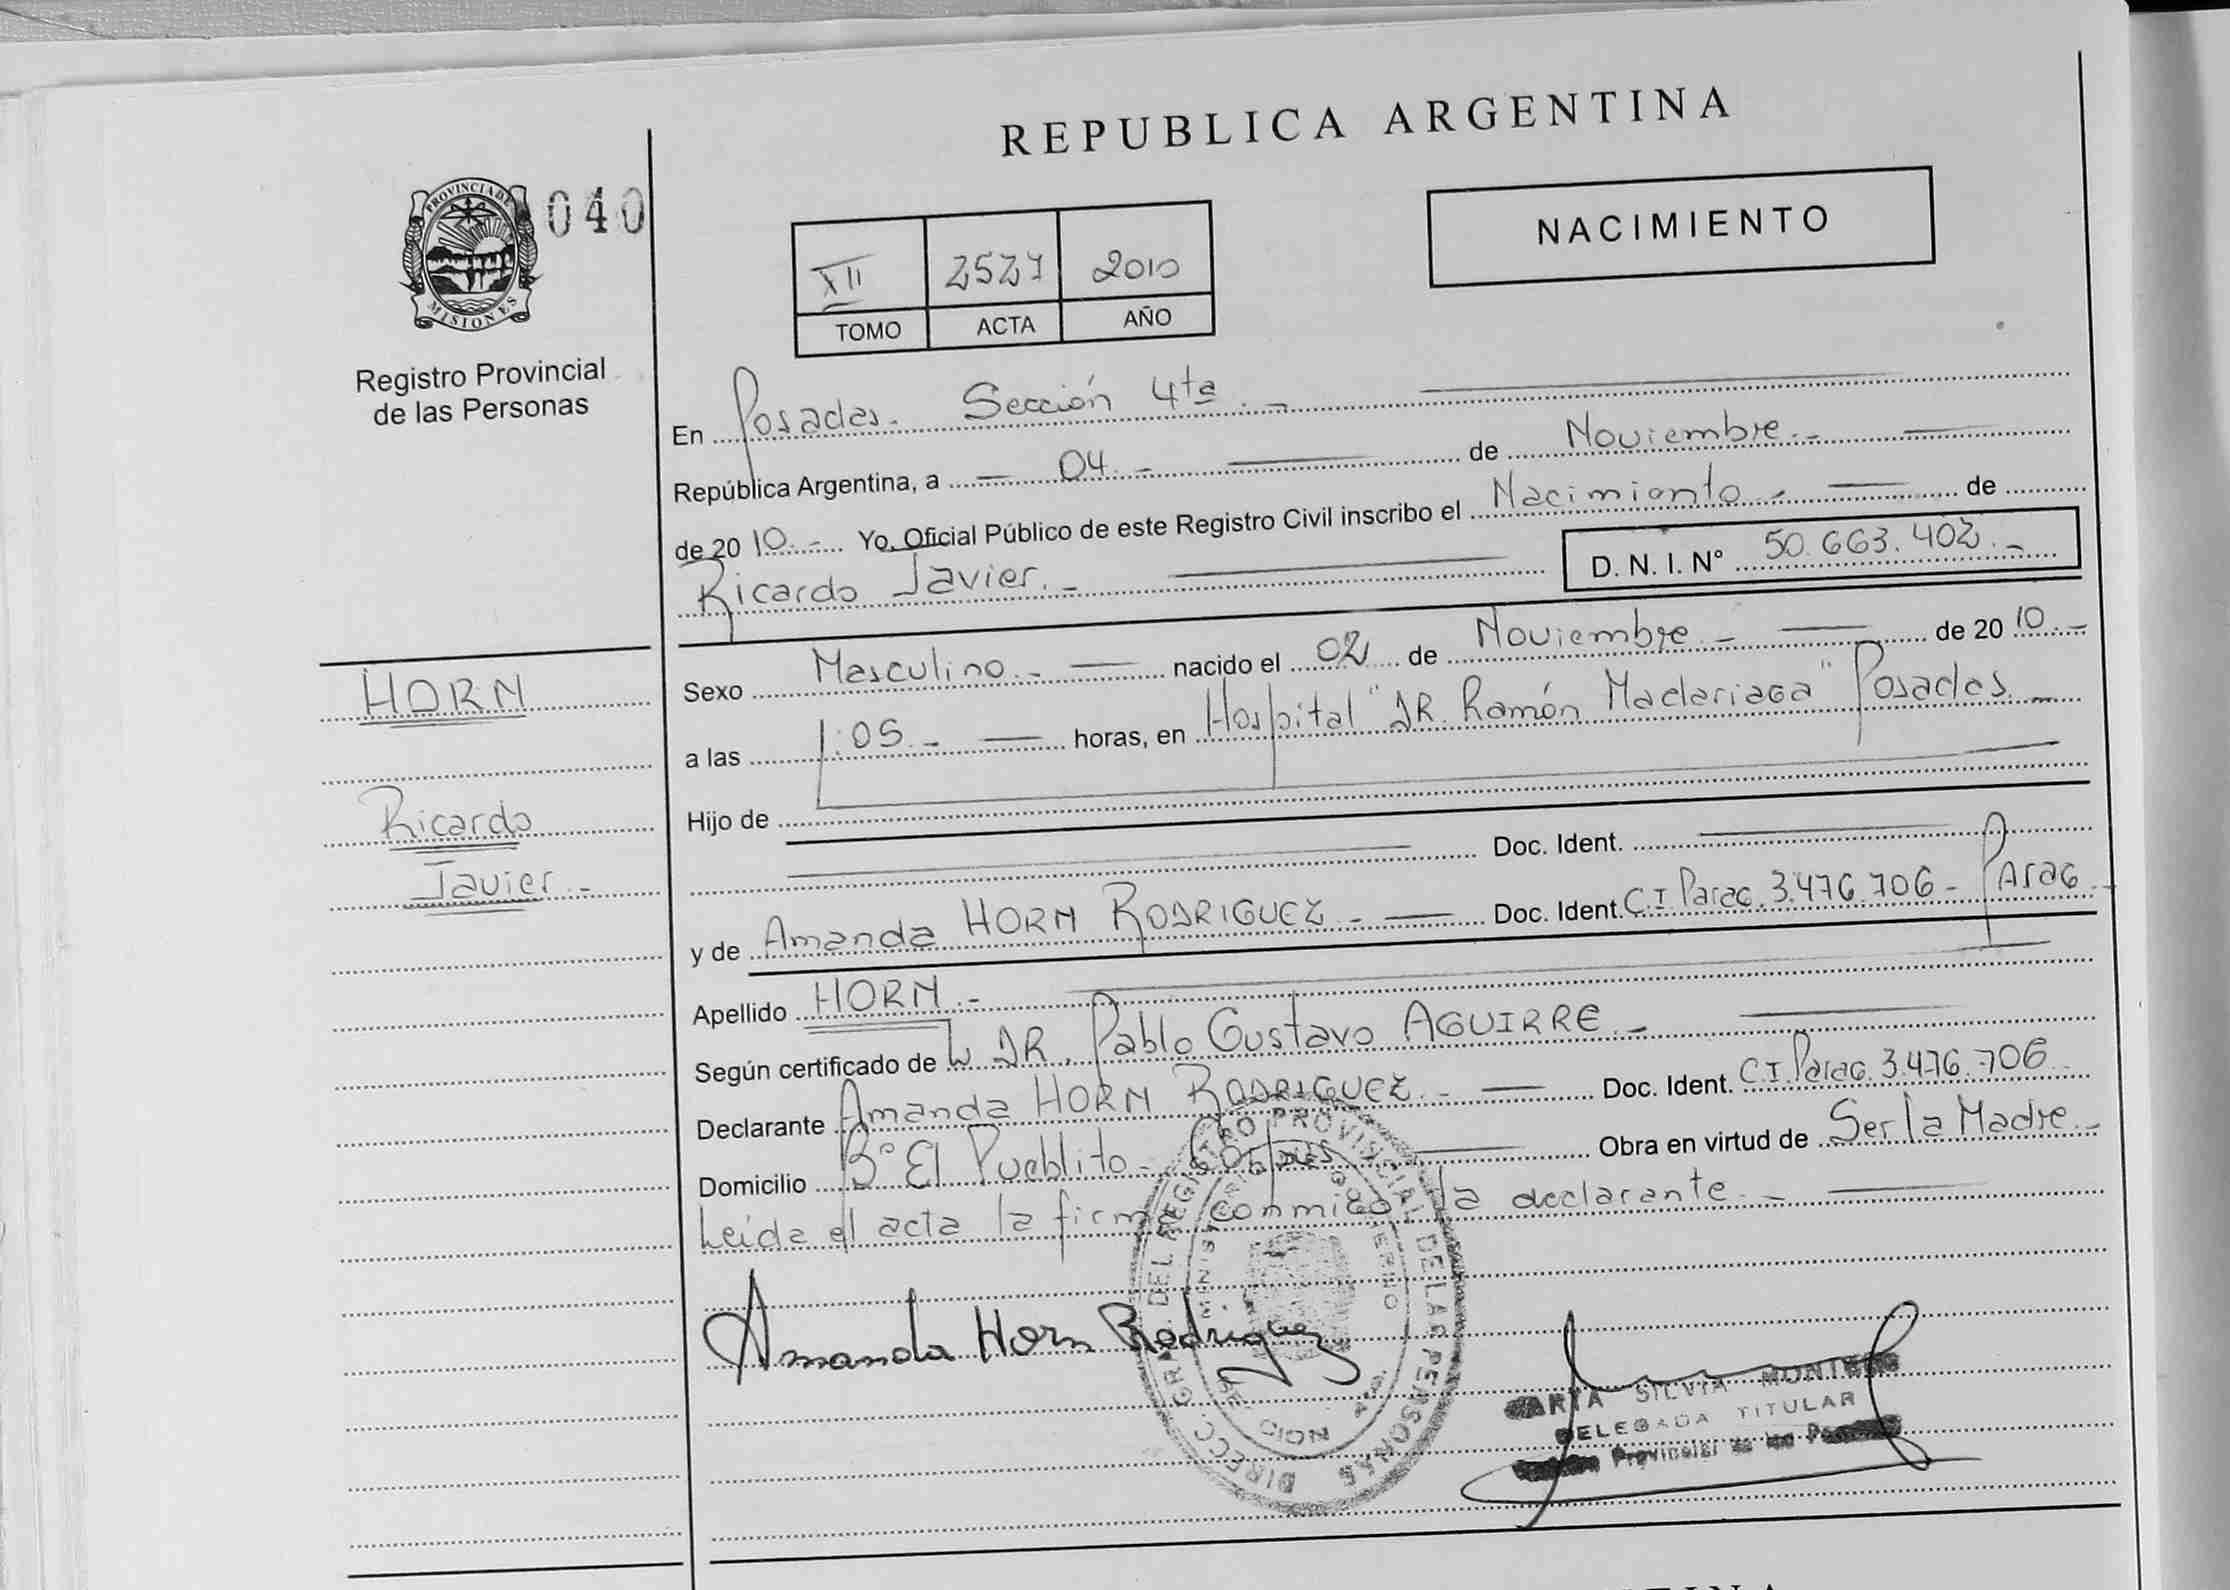 REPUBLICA ARGENTINA
PROVINCIA DE
MISIONES
040
Registro Provincial
de las Personas
NACIMIENTO
XII 2527 2010
TOMO ACTA AÑO
En Posadas. Sección 4ta.-
República Argentina, a 04.- de Noviembre.-
de 2010.- Yo, Oficial Público de este Registro Civil inscribo el Nacimiento.- de
Ricardo Javier.-
D. N. I. Nº 50.663.402.-
HORN
Ricardo
Javier.-
Sexo Masculino.- nacido el 02 de Noviembre.- de 2010.-
a las 1:05.- horas, en Hospital "DR. Ramón Madariaga" Posadas.-
Hijo de
Doc. Ident.
y de Amanda HORN RODRIGUEZ.- Doc. Ident. C.I Parag. 3.476.706- Parag.
Apellido HORN.-
Según certificado de DR. Pablo Gustavo AGUIRRE.-
Declarante Amanda HORN RODRIGUEZ.- Doc. Ident. C.I. Parag. 3.476.706
Domicilio Bº El Pueblito- Obra en virtud de Ser la Madre.-
Leida el acta la firma conmigo la declarante.-
Amanda Horn Rodriguez
DIRECC. GRAL. DEL REGISTRO PROVINCIAL DE LAS PERSONAS
SILVIA
DELEGADA TITULAR
Provincial de las